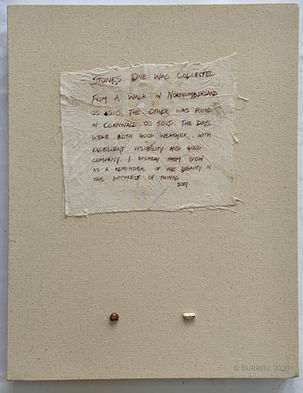 STONES. ONE WAS COLLECTED
FROM A WALK IN NORTHUMBERLAND
THE OTHER WAS FOUND
IN CORNWALL. THE DAYS
WERE BOTH GOOD WEATHER, WITH
EXCELLENT VISIBILITY AND GOOD
COMPANY. I DISPLAY THEM NOW
AS A REMINDER OF THE BEAUTY IN
THE SIMPLEST OF THINGS
2019
© BURRELL 2020